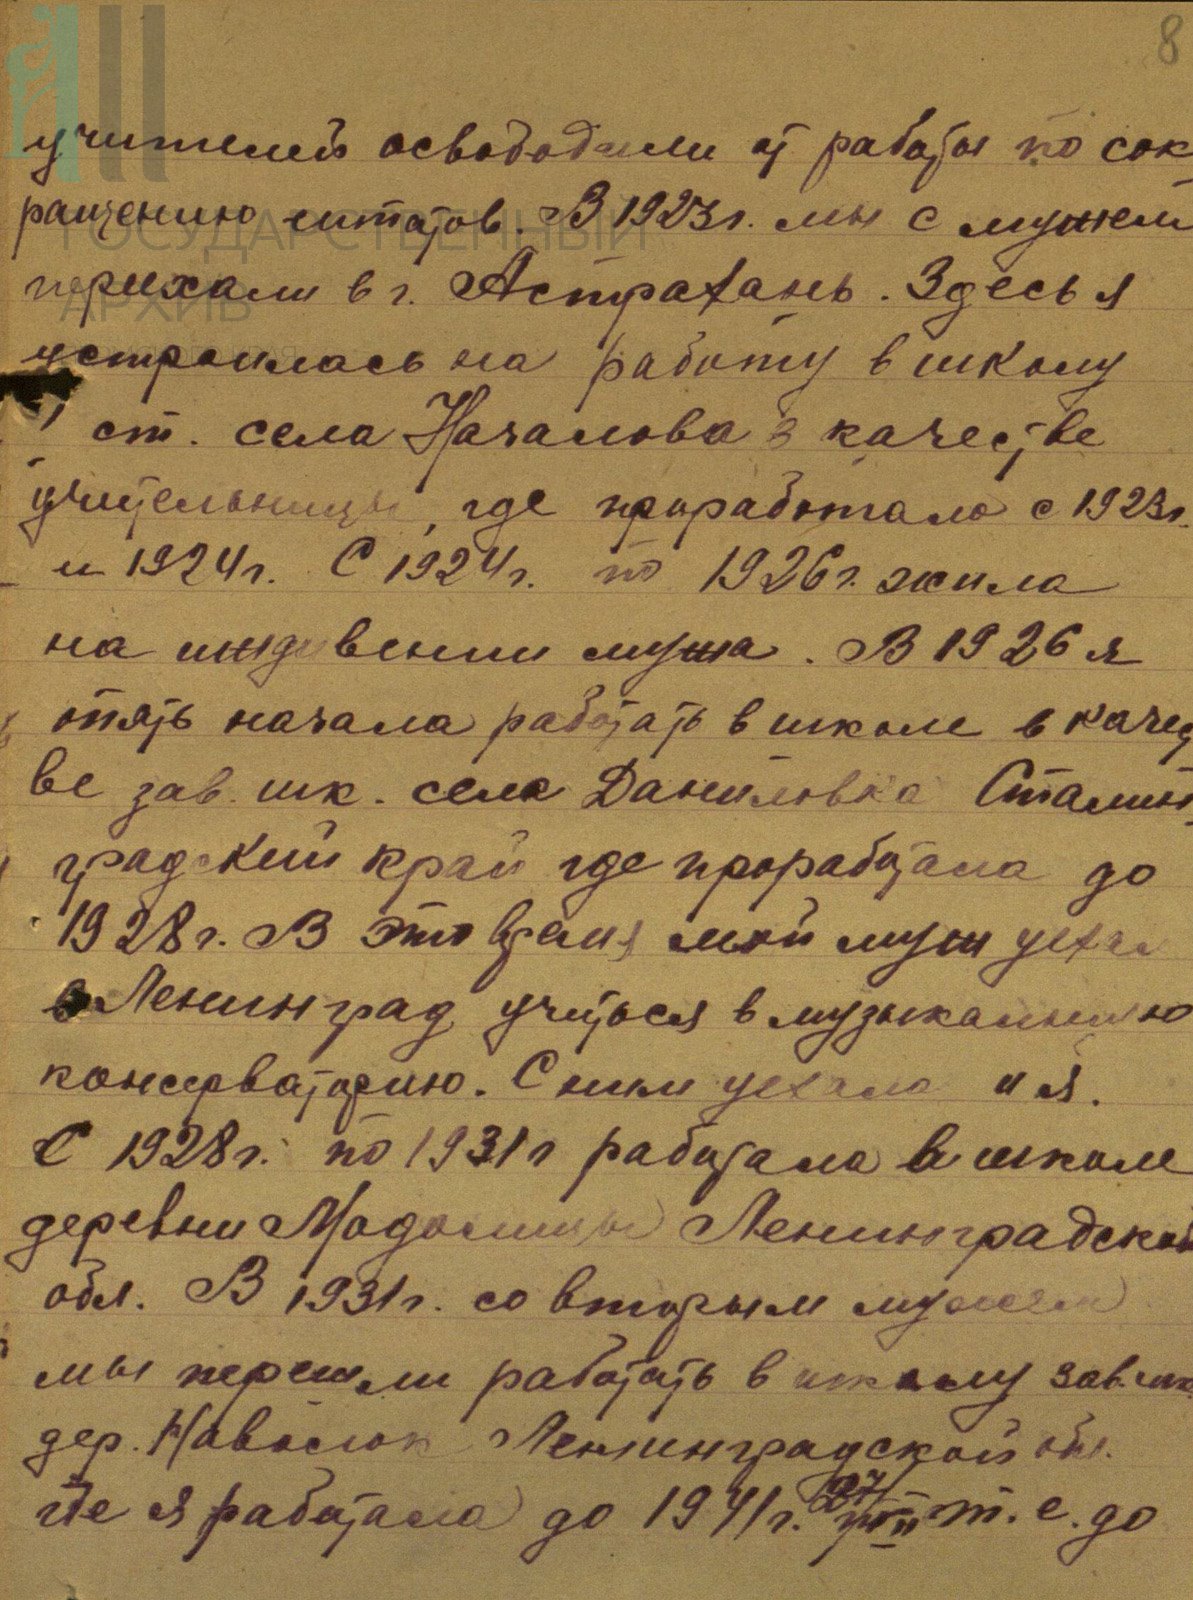 8
учителей освободили от работы по сок
ращению штатов. В 1923 г. мы с мужем
переехали в г. Астрахань. Здесь я
устроилась на работу в школу
I ст. села Началова в качестве
учительницы, где проработала с 1923 г.
и 1924 г. С 1924 г. по 1926 г. жила
на иждивении мужа. В 1926 я
опять начала работать в школе в качест
ве зав. шк. села Даниловка Сталин
градский край где проработала до
1928 г. В это время мой муж уехал
в Ленинград учиться в музыкальную
консерваторию. С ним уехала и я.
С 1928 г. по 1931 г работала в школе
деревни Ленинградской
обл. В 1931 г. со вторым мужем
мы перешли работать в школу зав. шк.
дер. Ленинградской обл.
где я работала до 1941 г. 27 т. е. до
ГОСУДАРСТВЕННЫЙ
АРХИВ